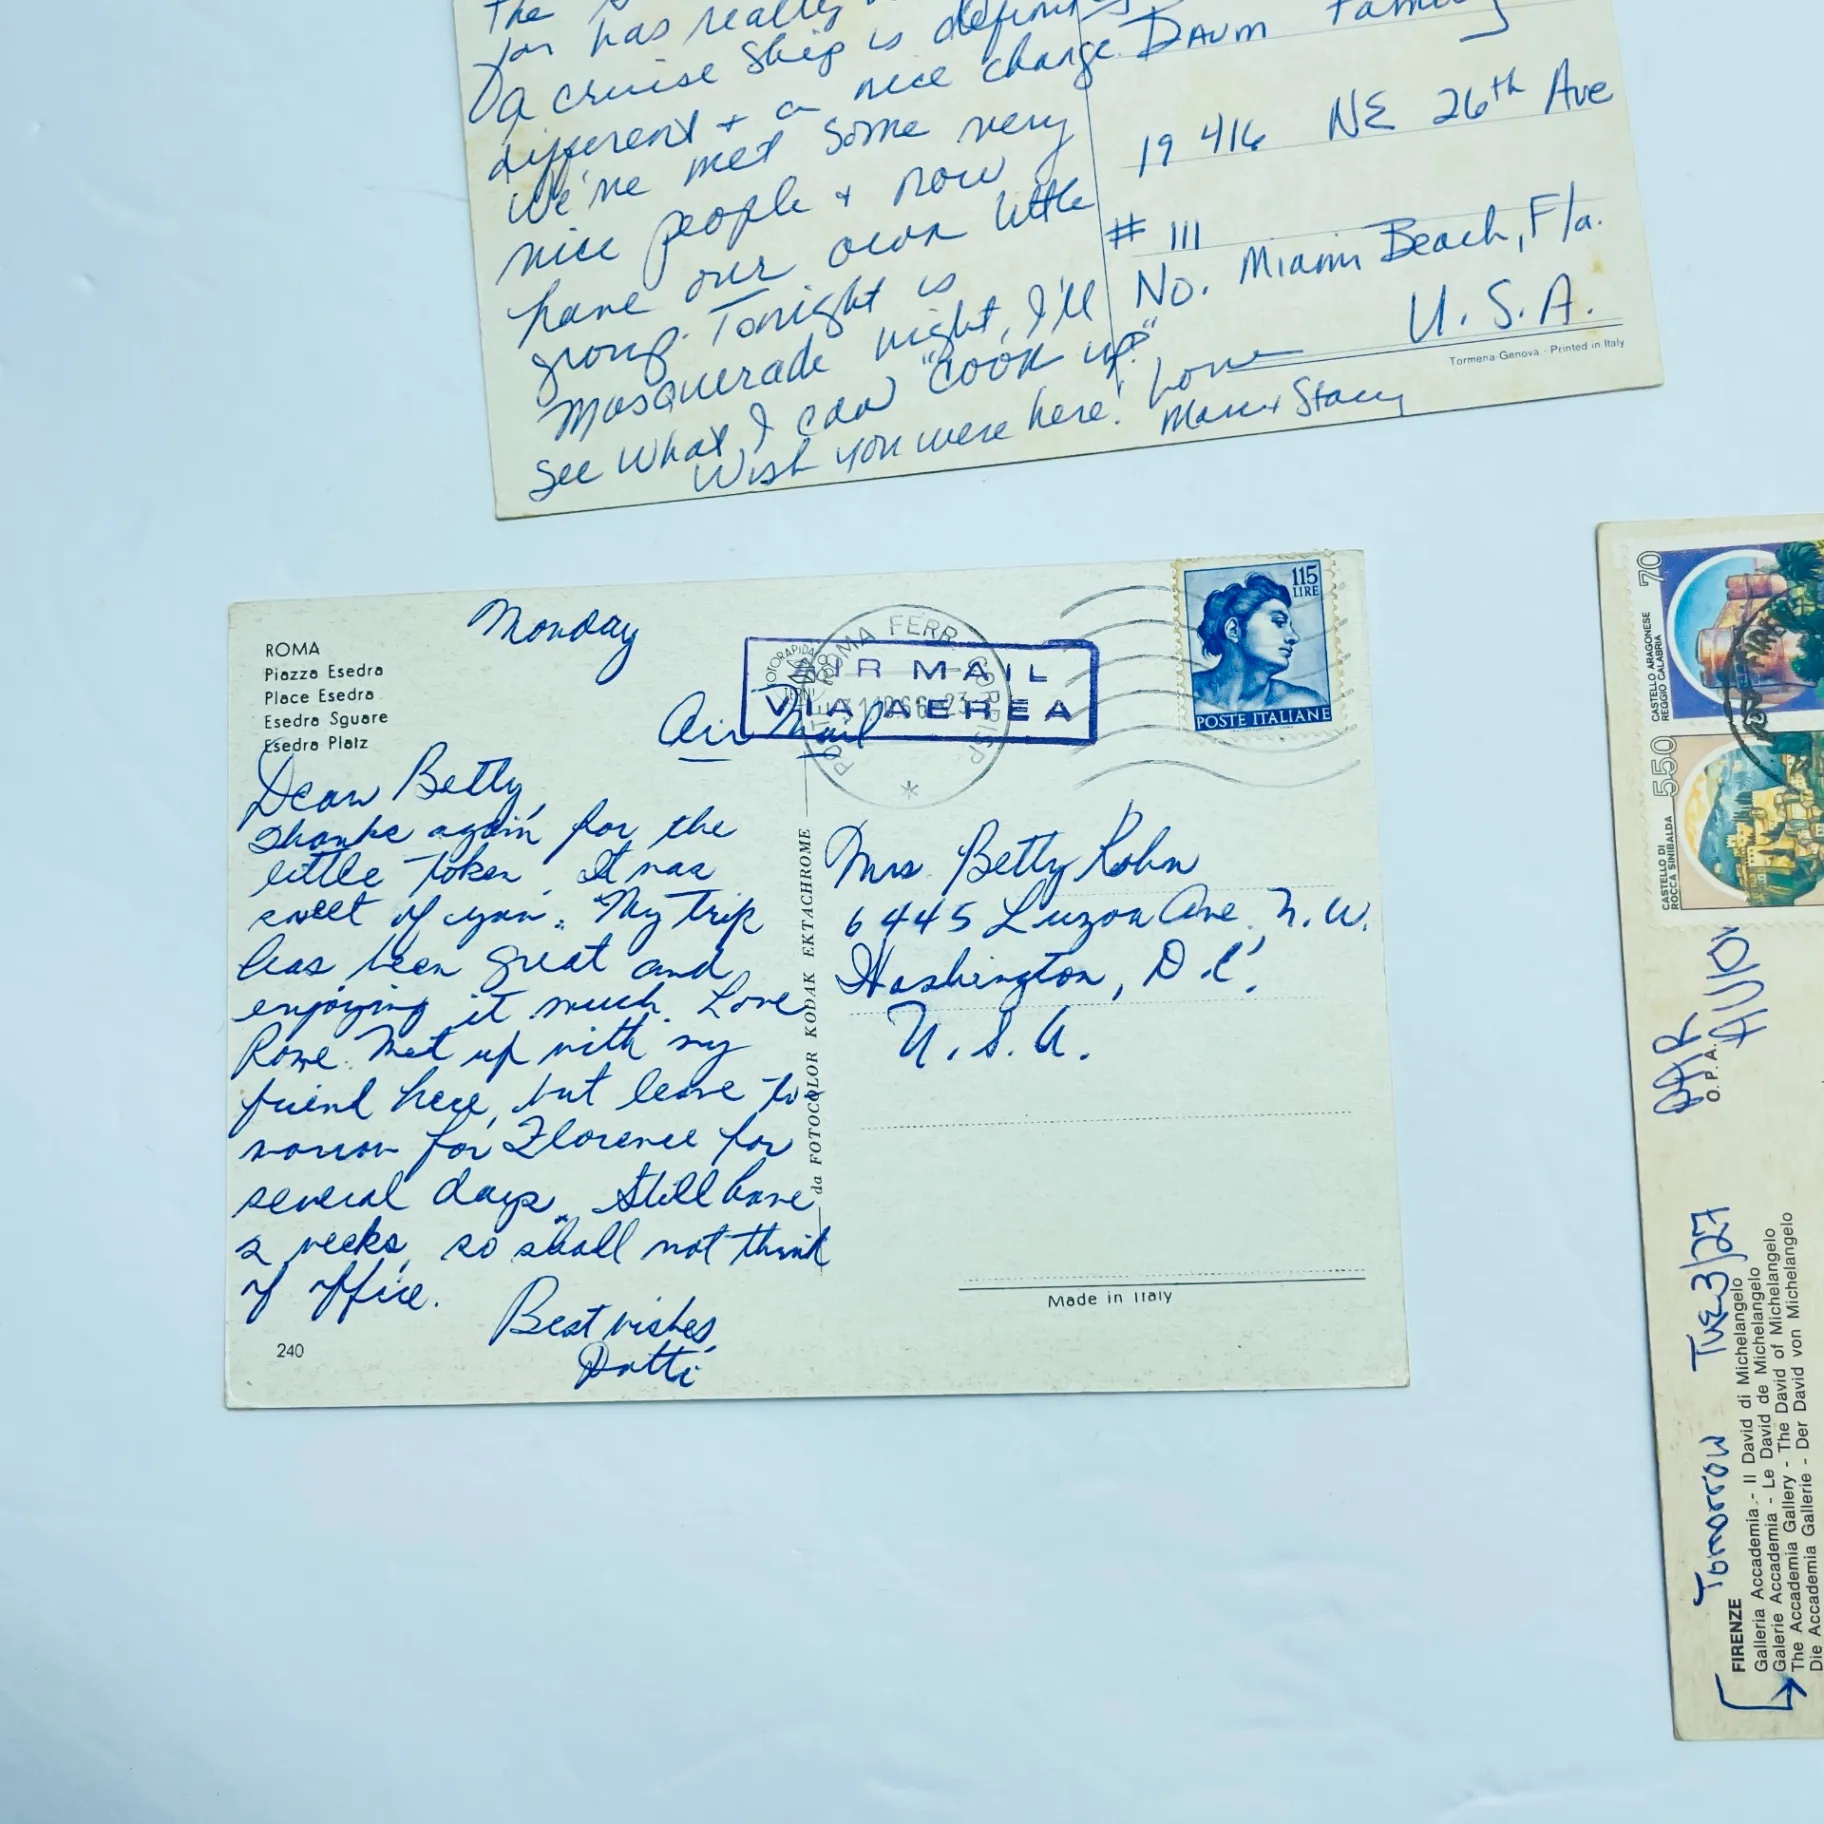 The
for has really
a cruise ship is
different + a nice change.
We've met some very
nice people + now
have our own little
group. Tonight is
Masquerade night, I'll
see what I can "cook up."
Wish you were here!
Love
Marc + Stacy
Daum Family
19 416 NE 26th Ave
# 111
No. Miami Beach, Fla.
U.S.A.
Tormena-Genova - Printed in Italy
ROMA
Piazza Esedra
Place Esedra
Esedra Sguare
Esedra Platz
Monday
Air Mail
AIR MAIL
VIA AEREA
POSTE ROMA FERR. CORRISP.
115
LIRE
POSTE ITALIANE
Dear Betty,
Thanks again for the
little token. It was
sweet of you. My trip
has been great and
enjoying it much. Love
Rome. Met up with my
friend here, but leave to-
morrow for Florence for
several days. Still have
2 weeks, so shall not think
of office.
Best wishes,
Patti
240
da FOTOCOLOR KODAK EKTACHROME
Mrs. Betty Kohn
6445 Luzon Ave. N.W.
Washington, D.C.
U.S.A.
Made in Italy
70
CASTELLO ARAGONESE
REGGIO CALABRIA
550
CASTELLO DI
ROCCA SINIBALDA
PAR
O.P.A.
Tomorrow Tue 3/27
FIRENZE
Galleria Accademia - Il David di Michelangelo
Galerie Accademia - Le David de Michelangelo
The Accademia Gallery - The David of Michelangelo
Die Accademia Gallerie - Der David von Michelangelo